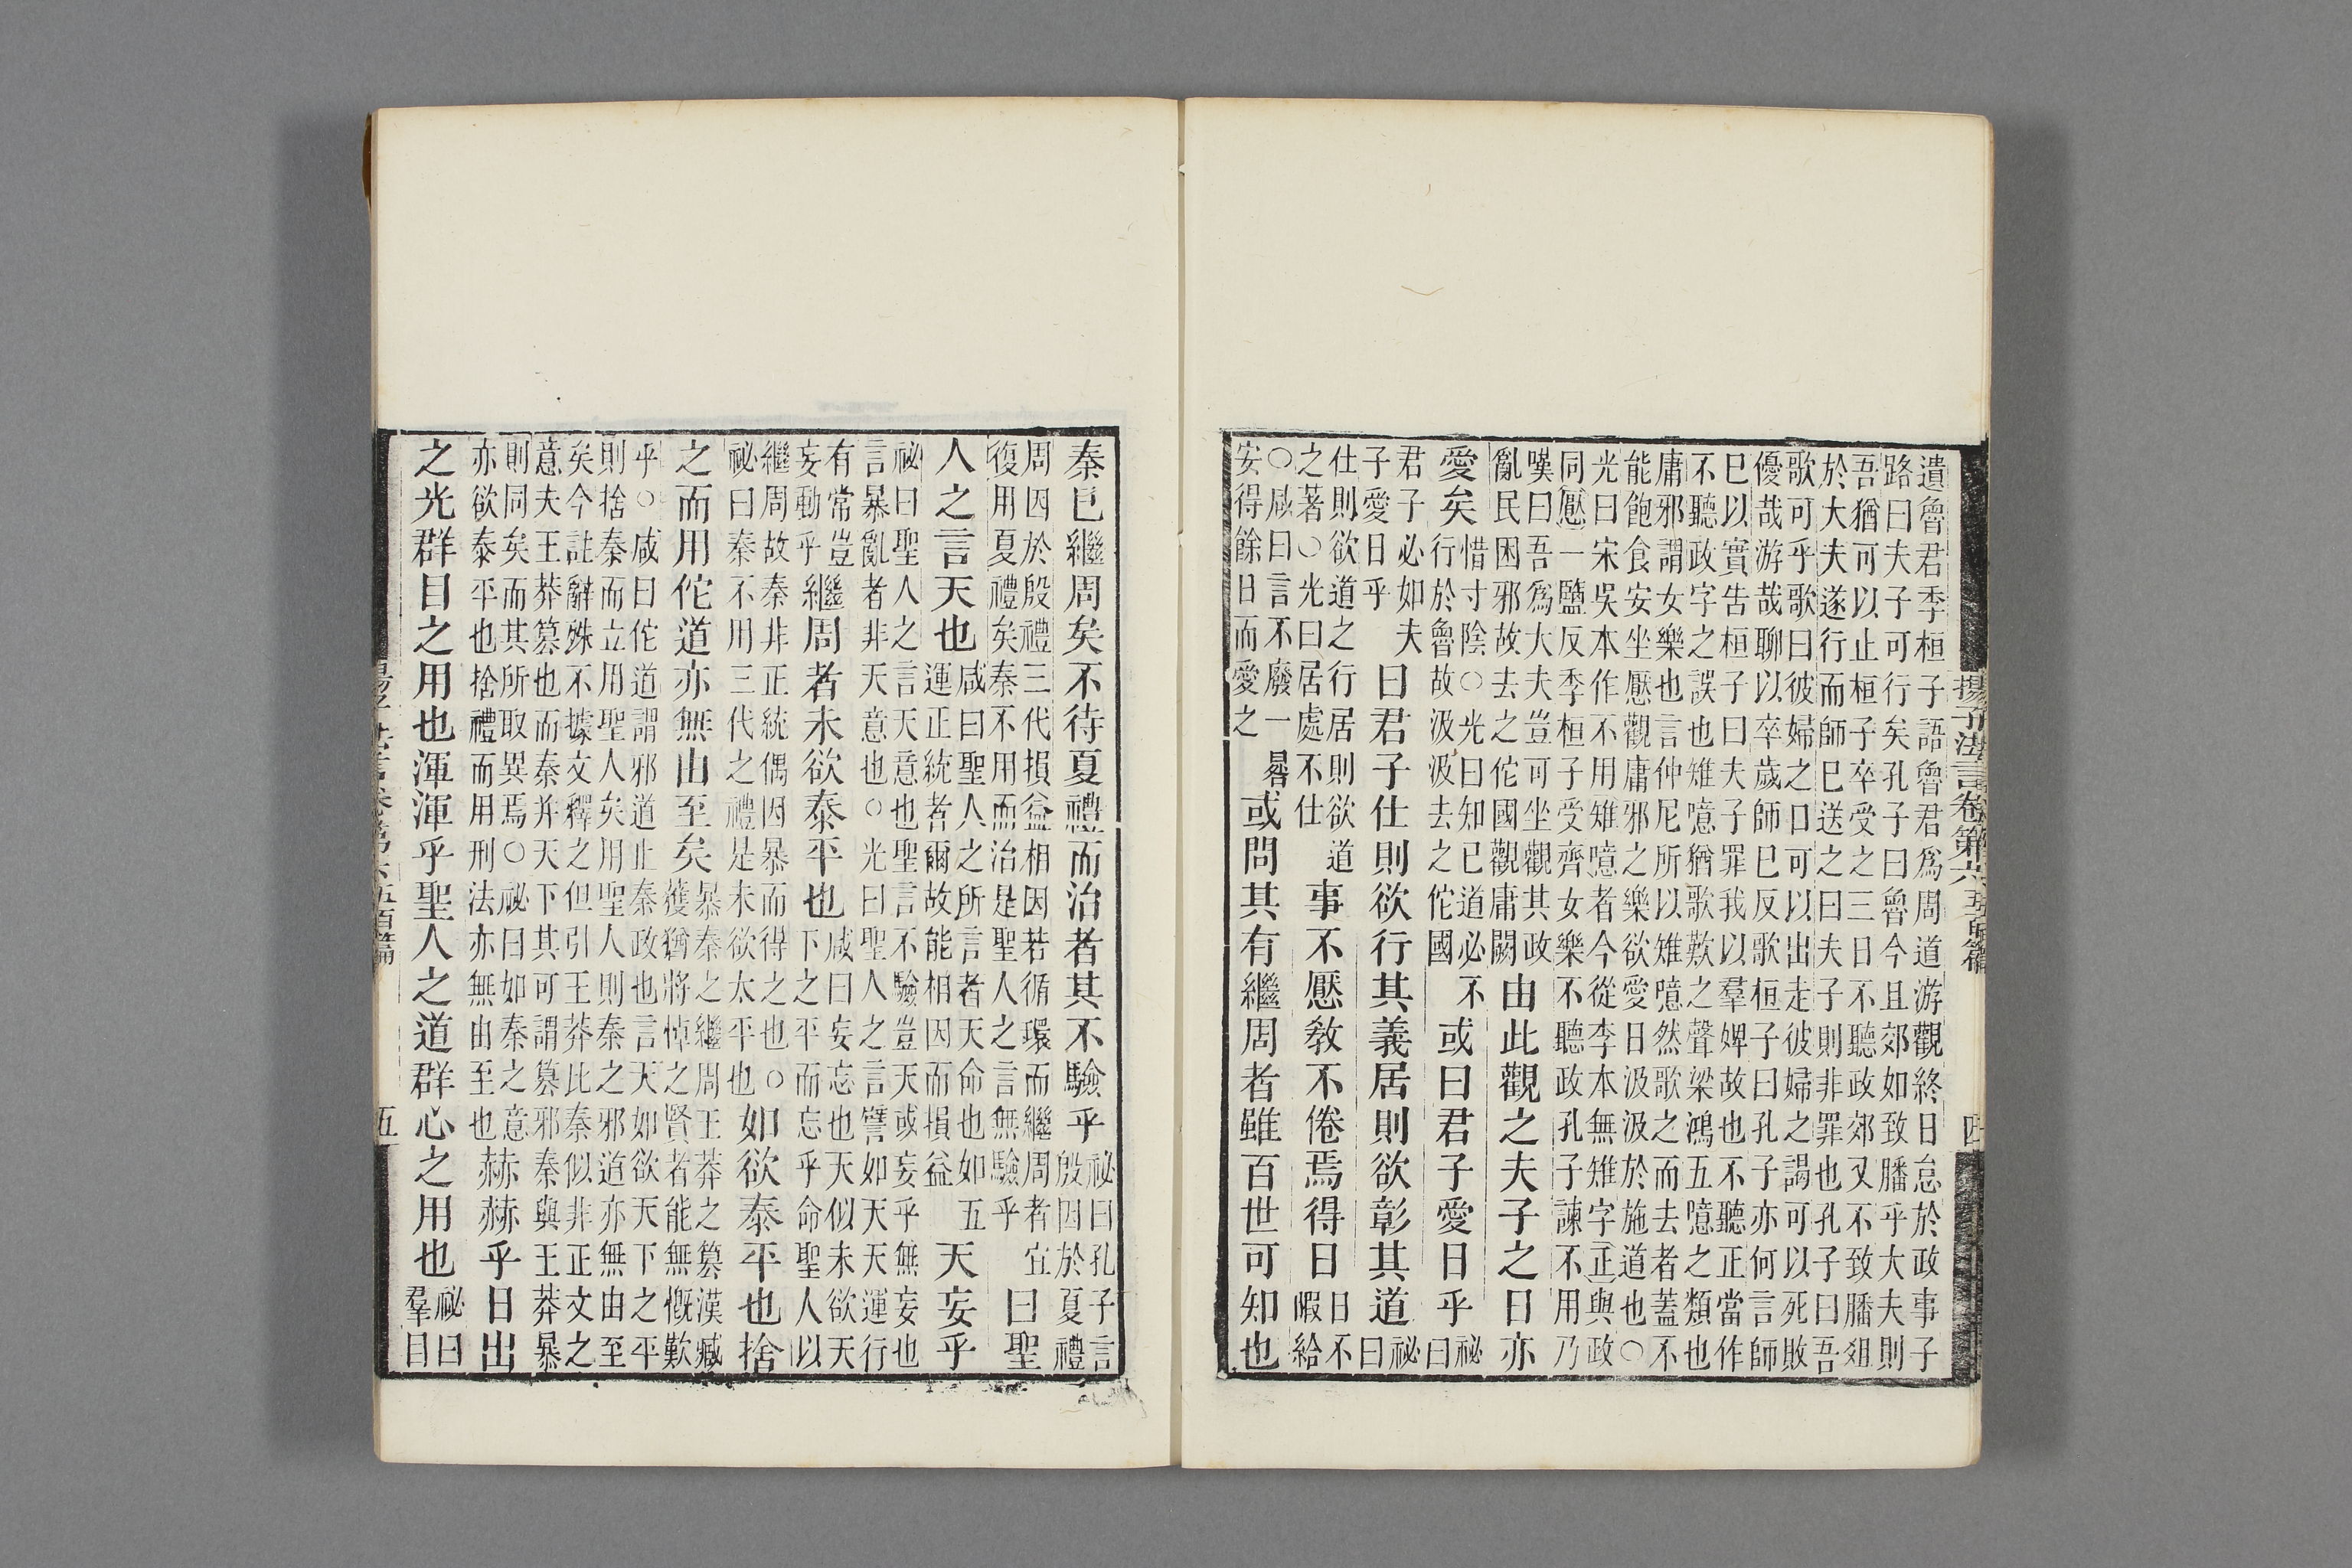 揚子法言卷第六 五百篇 四
遺魯君季桓子語魯君爲周道游觀終日怠於政事子
路曰夫子可行矣孔子曰魯今且郊如致膰乎大夫則
吾猶可以止桓子卒受之三日不聽政郊又不致膰俎
於大夫遂行而師巳送之曰夫子則非罪也孔子曰吾
歌可乎歌曰彼婦之口可以出走彼婦之謁可以死敗
優哉游哉聊以卒歲師巳反歌桓子曰孔子亦何言師
巳以實告桓子曰夫子罪我以羣婢故也不聽正當作
不聽政字之誤也雉噫猶歌歎之聲梁鴻五噫之類也
庸邪謂女樂也言仲尼所以雉噫然歌之而去者蓋不
能飽食安坐厭觀庸邪之樂欲愛日汲汲於施道也○
光曰宋吳本作不用雉噫者今從李本無雉字正與政
同厭一鹽反季桓子受齊女樂不聽政孔子諫不用乃
嘆曰吾爲大夫豈可坐觀其政
亂民困邪故去之佗國觀庸闕
由此觀之夫子之日亦
愛矣
惜寸陰○光曰知已道必不
行於魯故汲汲去之佗國
或曰君子愛日乎
祕曰
君子必如夫
子愛日乎
曰君子仕則欲行其義居則欲彰其道
祕曰
仕則欲道之行居則欲道
之著○光曰居處不仕
事不厭敎不倦焉得日
日不
暇給
○咸曰言不廢一晷
安得餘日而愛之
或問其有繼周者雖百世可知也
秦已繼周矣不待夏禮而治者其不驗乎
祕曰孔子言
殷因於夏禮
周因於殷禮三代損益相因若循環而繼周者宜
復用夏禮矣秦不用而治是聖人之言無驗乎
曰聖
人之言天也
咸曰聖人之所言者天命也如五
運正統者爾故能相因而損益
天妄乎
祕曰聖人之言天意也聖言不驗豈天或妄乎無妄也
言暴亂者非天意也○光曰聖人之言譬如天天運行
有常豈
妄動乎
繼周者未欲泰平也
咸曰妄忘也天似未欲天
下之平而忘乎命聖人以
繼周故秦非正統偶因暴而得之也○
祕曰秦不用三代之禮是未欲太平也
如欲泰平也捨
之而用佗道亦無由至矣
暴秦之繼周王莽之簒漢臧
獲猶將悼之賢者能無慨歎
乎○咸曰佗道謂邪道止秦政也言天如欲天下之平
則捨秦而立用聖人矣用聖人則秦之邪道亦無由至
矣今註辭殊不據文釋之但引王莽比秦似非正文之
意夫王莽簒也而秦并天下其可謂簒邪秦與王莽暴
則同矣而其所取異焉○祕曰如秦之意
亦欲泰平也捨禮而用刑法亦無由至也
赫赫乎日出
之光群目之用也渾渾乎聖人之道群心之用也
祕曰
羣目
五百篇
五